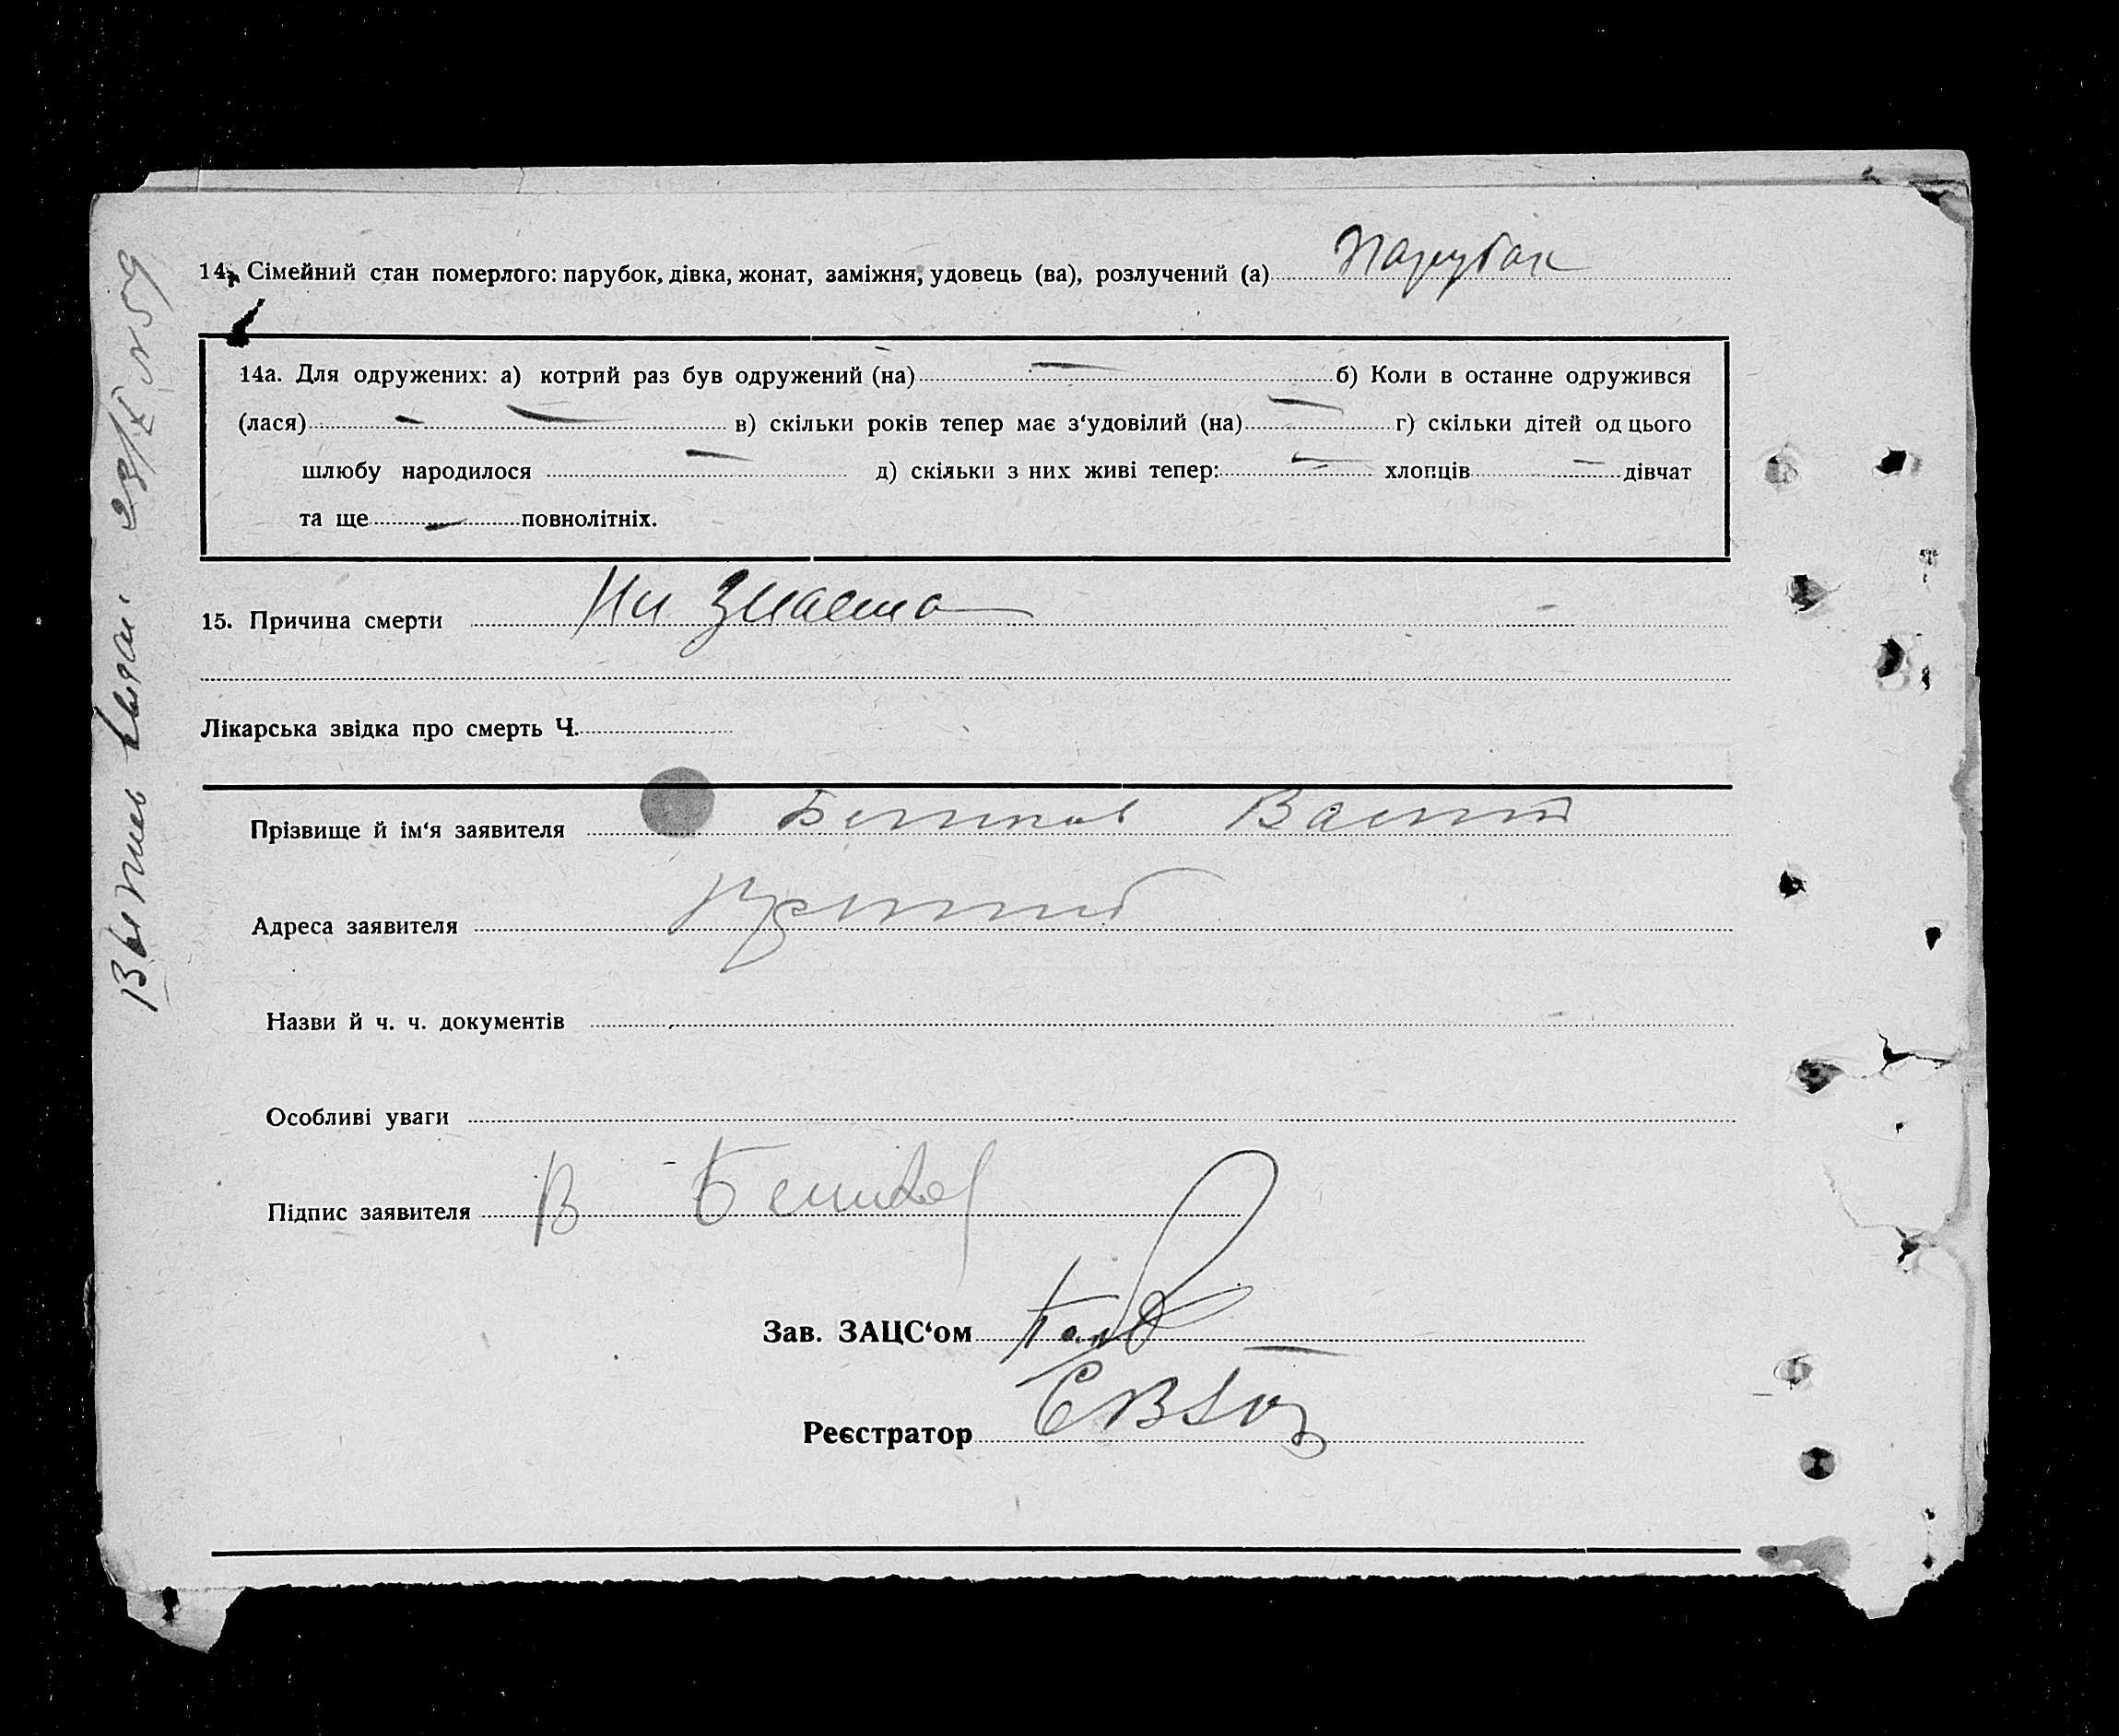 14. Сімейний стан померлого: парубок, дівка, жонат, заміжня, удовець (ва), розлучений (а) Парубок
14а. Для одружених: а) котрий раз був одружений (на) — б) Коли в останне одружився
(лася) — — в) скільки років тепер має з‘удовілий (на) — г) скільки дітей од цього
шлюбу народилося — д) скільки з них живі тепер: — хлопців — дівчат
та ще — повнолітніх.
15. Причина смерти Ни знаємо
Лікарська звідка про смерть Ч.
Прізвище й ім‘я заявителя
Адреса заявителя
Назви й ч. ч. документів
Особливі уваги
Підпис заявителя В
Зав. ЗАЦС‘ом
Реєстратор
28/X N 59